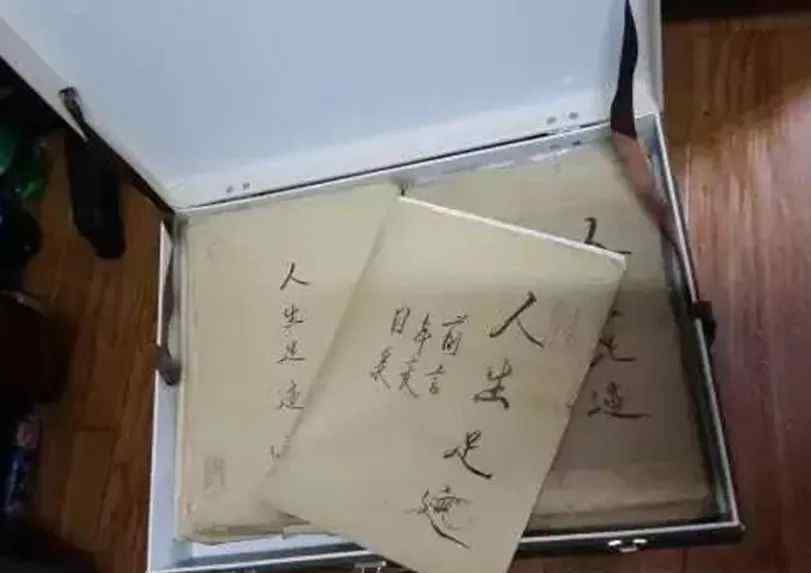 人生足迹
人生足迹
前言
本文
目录
人足迹